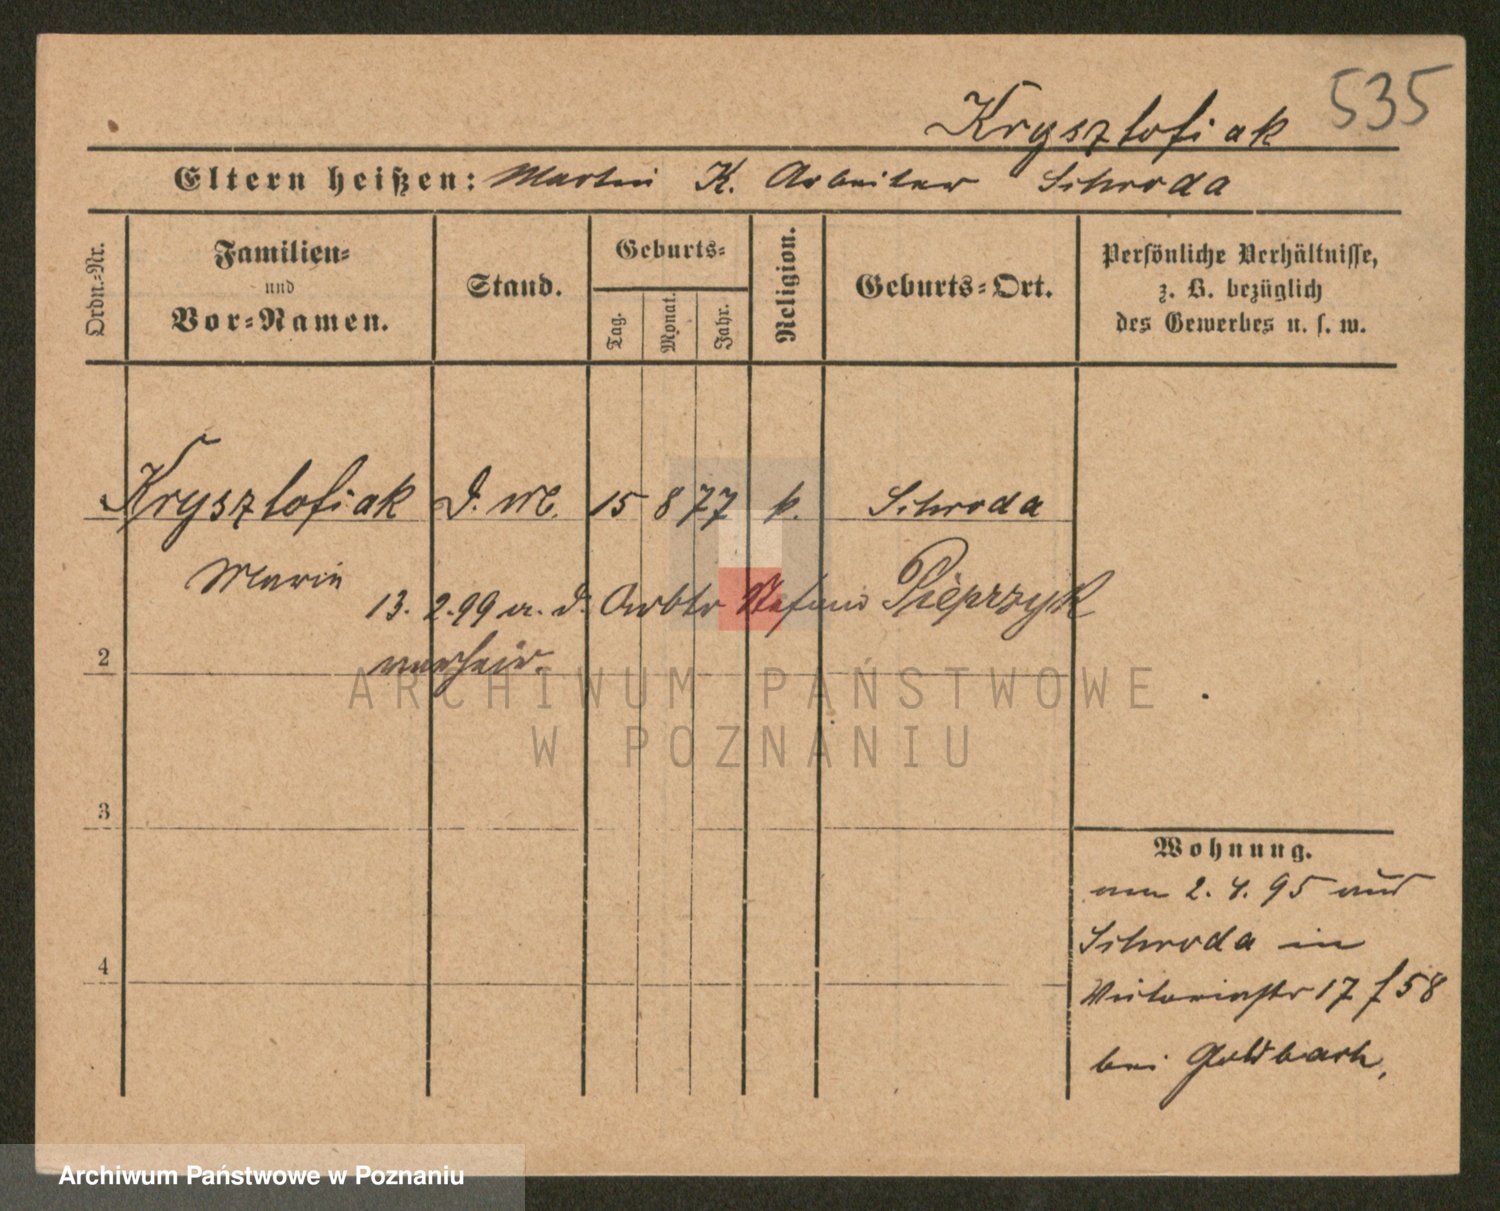 535
Krysztofiak
Eltern heißen: Martin K. Arbeiter Schroda
Ordn.-Nr.
Familien-
und
Vor-Namen.
Stand.
Geburts-
Tag.
Monat.
Jahr.
Religion.
Geburts-Ort.
Persönliche Verhältnisse,
z. B. bezüglich
des Gewerbes u. s. w.
Krysztofiak D. M. 15 8 77 k. Schroda
Marie
13. 2. 99 a. d. Arbtr Stefan Pieprzyk
2 verheir.
3
4
Wohnung.
am 2. 4. 95 aus
Schroda in
Victoriastr 17 f 58
bei Goldbach.
ARCHIWUM PAŃSTWOWE
W POZNANIU
Archiwum Państwowe w Poznaniu